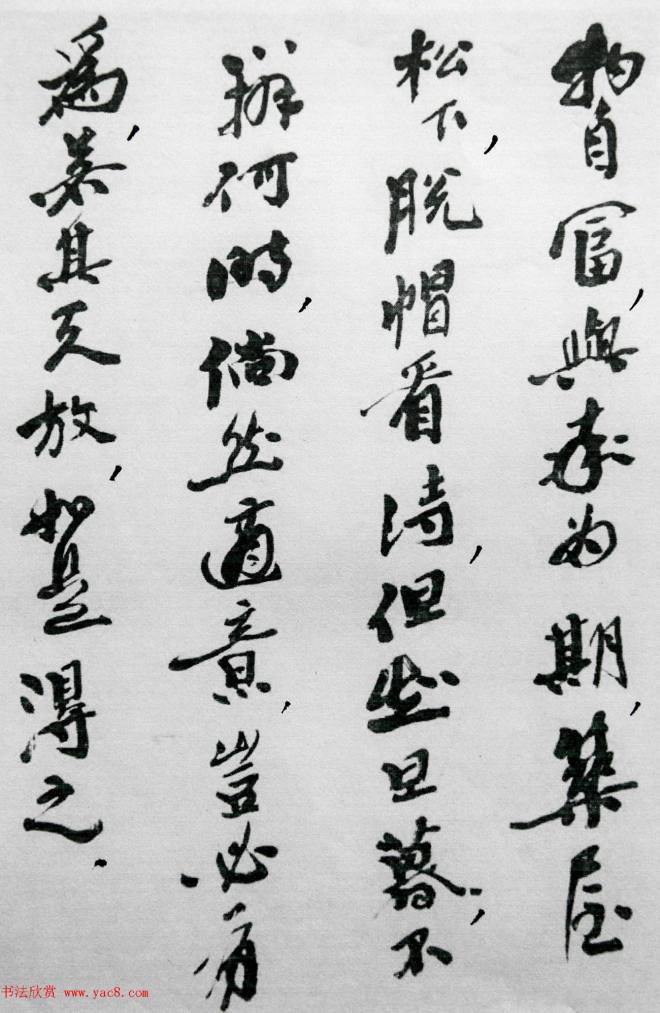 物自富，與率为期，築屋
松下，脱帽看詩，但旦暮，不
辨何時，倘然適意，豈必有
爲，若其天放，如是得之．
书法欣赏 www.yac8.com